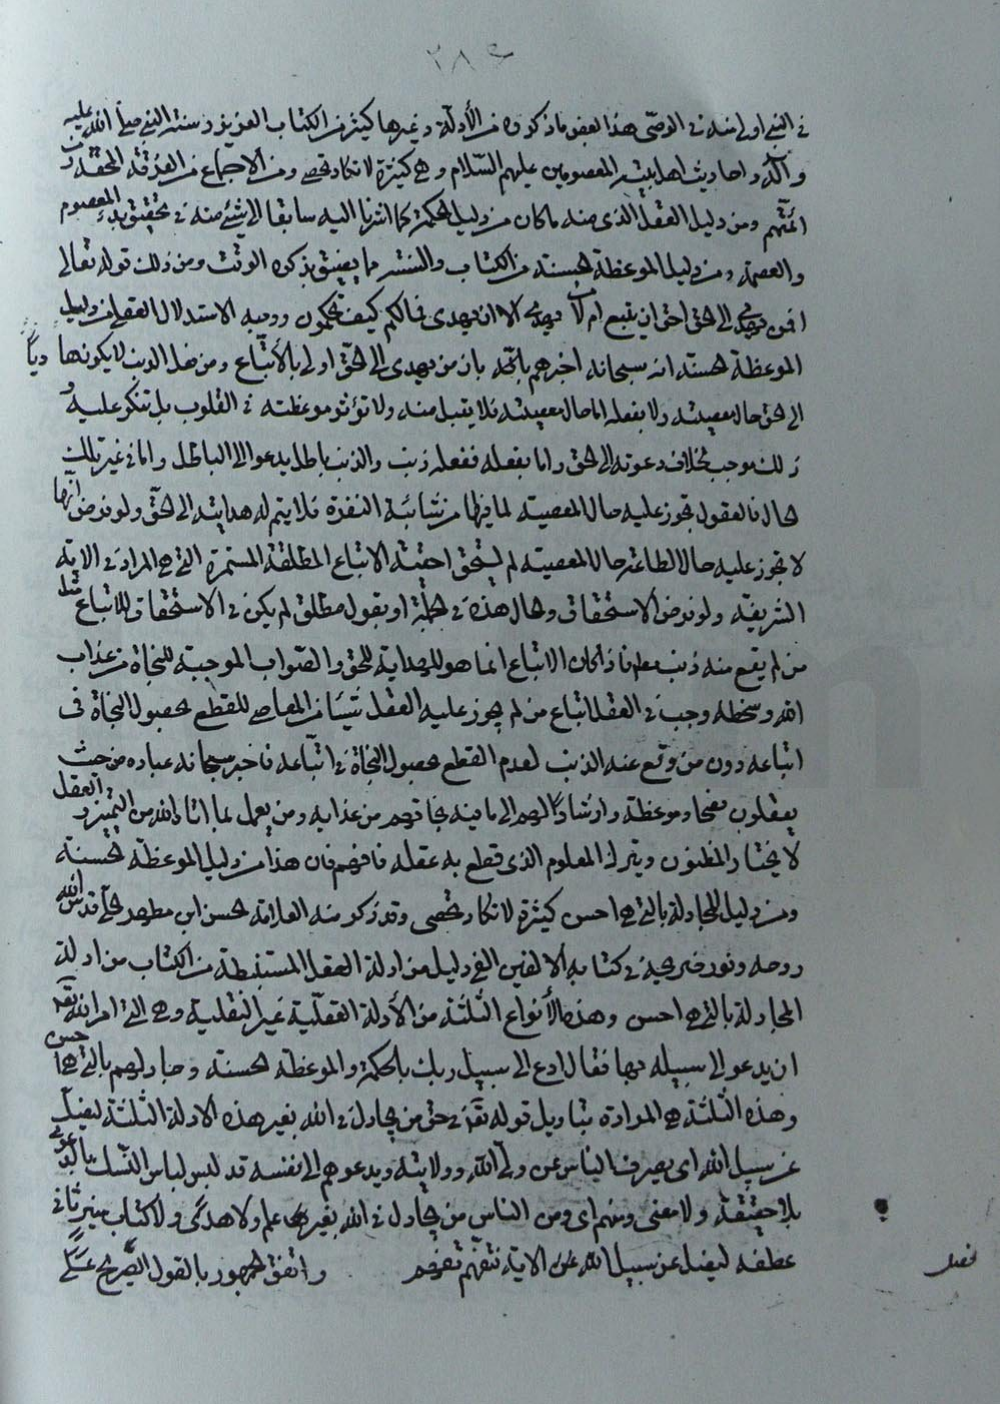 ٢٨٤
في النبي اولى منه في الوصي هذا بعض ما ذكروه من الأدلة وغيرها كثير من الكتاب العزيز وسنة النبي صلى الله عليه
وآله واحاديث اهل بيته المعصومين عليهم السلام وهي كثيرة لا تكاد تحصى ومن الاجماع من الفرقة المحقة و
ائمتهم ومن دليل العقل الذي منه ما كان من دليل الحكمة كما اشرنا اليه سابقا الى شيء منه في تحقيق بدء المعصوم
والعصمة ومن دليل الموعظة الحسنة من الكتاب والسنة ما يضيق بذكره الوقت ومن ذلك قوله تعالى
افمن يهدي الى الحق احق ان يتبع ام من لا يهدي الا ان يهدى فما لكم كيف تحكمون ووجه الاستدلال العقلي من دليل
الموعظة الحسنة انه سبحانه اخبرهم بانه بان من يهدي الى الحق اولى بالأتباع ومن فعل الذنب لا يكون هاديا
الى الحق حال معصيته ولا بفعله اما حال معصيته فلا يقبل منه ولا تؤثر موعظته في القلوب بل تنكر عليه و
ذلك موجب بخلاف دعوته الى الحق واما بفعله ففعله ذنب والذنب باطل يدعو الى الباطل واما في غير تلك
الحال فالعقول تجوز عليه حال المعصية لما فيها من شائبة النفرة فلا يتم له هدايته الى الحق ولو فرض انها
لا تجوز عليه حال الطاعة حال المعصية لم يستحق احقية الاتباع المطلقة المستمرة التي هي المراد في الاية
الشريفة ولو فرض الاستحقاق والحال هذه في الجملة او بقول مطلق لم يكن في الاستحقاق للاتباع مثل
من لم يقع منه ذنب فاذا كان الاتباع انما هو للهداية للحق والصواب الموجبة للنجاة من عذاب
الله وسخطه وجب في العقل اتباع من لم يجوز عليه العقل شيئا من المعاصي للقطع بحصول النجاة في
اتباعه دون من وقع عنه الذنب لعدم القطع بحصول النجاة في اتباعه فاخبر سبحانه عباده من حيث
يعقلون نصحا وموعظة وارشادا لهم الى ما فيه نجاتهم من عذابه ومن يعمل بما اتاه الله من التميز والعقل
لا يختار المظنون ويترك المعلوم الذي قطع به عقله فافهم فان هذا من دليل الموعظة الحسنة
ومن دليل المجادلة بالتي هي احسن كثيرة لا تكاد تحصى وقد ذكر منه العلامة الحسن ابن مطهر الحلي قدس الله
روحه ونور ضريحه في كتابه الالفين الفي دليل من ادلة العقل المستنبطة من الكتاب من ادلة
المجادلة بالتي هي احسن وهذه الأنواع الثلثة من الأدلة العقلية غير النقلية وهي التي امر الله تعالى
ان يدعو الى سبيله بها فقال ادع الى سبيل ربك بالحكمة والموعظة الحسنة وجادلهم بالتي هي احسن
وهذه الثلثة هي المرادة بتاويل قوله تعالى في حق من يجادل في الله بغير هذه الادلة الثلثة ليضل
عن سبيل الله اي يصرف الناس عن ولي الله وولايته ويدعوهم الى نفسه قد لبس لباس النسك بالدعوى
بلا حقيقة ولا معنى ومنهم اي ومن الناس من يجادل في الله بغير علم ولا هدى ولا كتاب منير ثاني
عطفه ليضل عن سبيل الله عن الاية فتفهم تفهم واتفق الجمهور بالقول الصريح على
فصل